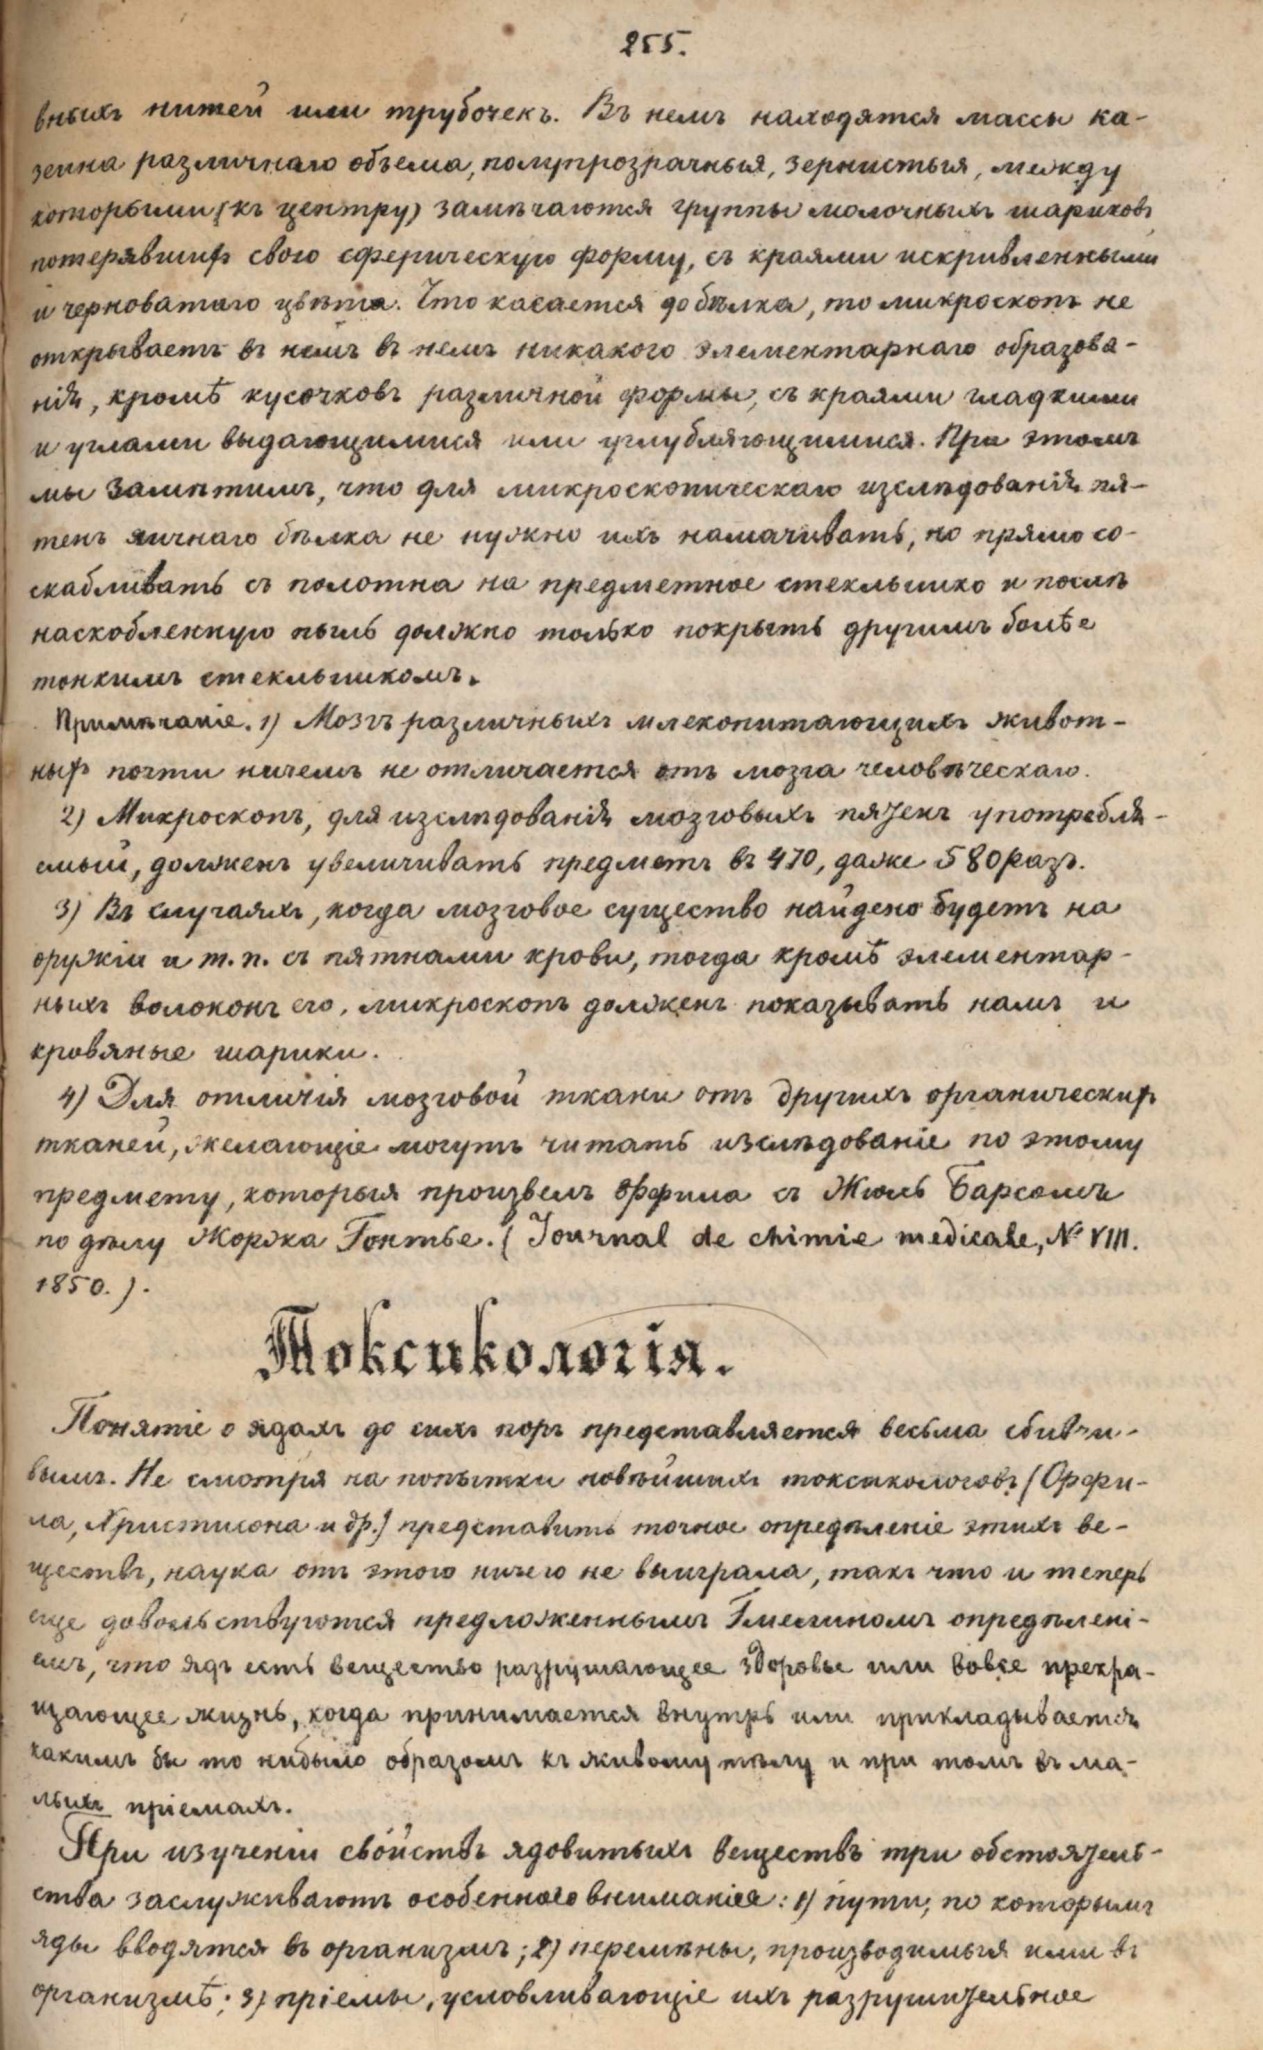 255.
вныхъ нитей или трубочекъ. Въ немъ находятся массы ка-
зеина различнаго объема, полупрозрачныя, зернистыя, между
которыми (къ центру) замѣчаются группы молочныхъ шариковъ
потерявшихъ свою сферическую форму, съ краями искривленными
и черноватаго цвѣта. Что касается до бѣлка, то микроскопъ не
открываетъ въ немъ въ немъ никакого элементарнаго образова-
нія, кромѣ кусочковъ различной формы, съ краями гладкими
и углами выдающимися или углубляющимися. При этомъ
мы замѣтимъ, что для микроскопическаго изслѣдованія пя-
тенъ яичнаго бѣлка не нужно ихъ намачивать, но прямо со-
скабливать съ полотна на предметное стеклышко и послѣ
наскобленную пыль должно только покрыть другимъ болѣе
тонкимъ стеклышкомъ.
Примѣчаніе. 1) Мозгъ различныхъ млекопитающихъ живот-
ныхъ почти ничемъ не отличается отъ мозга человѣческаго.
2) Микроскопъ, для изслѣдованія мозговыхъ пятенъ употребля-
емый, долженъ увеличивать предметъ въ 470, даже 580 разъ.
3) Въ случаяхъ, когда мозговое существо найдено будетъ на
оружіи и т. п. съ пятнами крови, тогда кромѣ элементар-
ныхъ волоконъ его, микроскопъ долженъ показывать намъ и
кровяные шарики.
4) Для отличія мозговой ткани отъ другихъ органическихъ
тканей, желающіе могутъ читать изслѣдованіе по этому
предмету, которыя произвелъ Орфила съ Жюль Барсомъ
по дѣлу Жоржа Гонтье. (Journal de chimie medicale, № VIII.
1850.).
Токсикологія.
Понятіе о ядахъ до сихъ поръ представляется весьма сбивчи-
вымъ. Не смотря на попытки новѣйшихъ токсикологовъ (Орфи-
ла, Христисона и др.) представить точное опредѣленіе этихъ ве-
ществъ, наука отъ этого ничего не выиграла, такъ что и теперь
еще довольствуются предложеннымъ Гмелиномъ опредѣлені-
емъ, что ядъ есть вещество разрушающее здоровье или вовсе прекра-
щающее жизнь, когда принимается внутрь или прикладывается
какимъ бы то нибыло образомъ къ живому тѣлу и при томъ въ ма-
лыхъ пріемахъ.
При изученіи свойствъ ядовитыхъ веществъ три обстоятель-
ства заслуживаютъ особеннаго вниманія: 1) пути, по которымъ
яды вводятся въ организмъ; 2) перемѣны, производимыя ими въ
организмѣ; 3) пріемы, условливающіе ихъ разрушительное